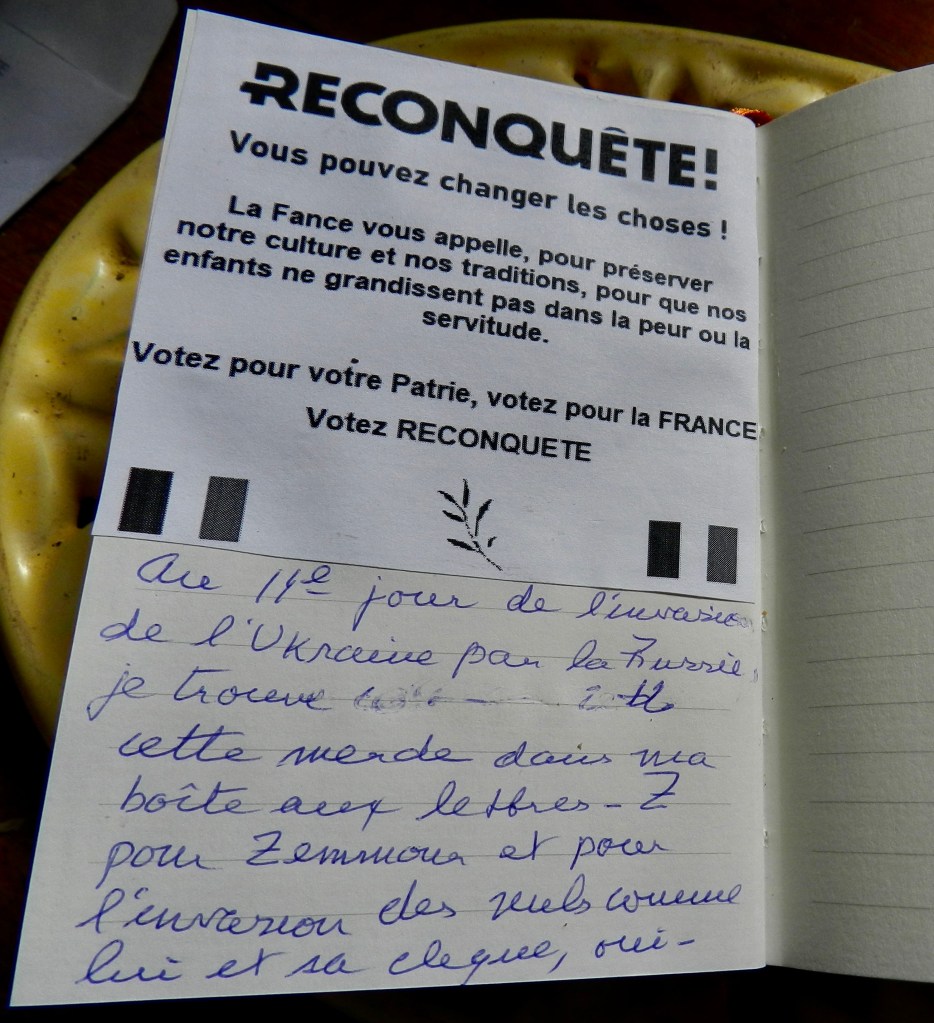 RECONQUÊTE!
Vous pouvez changer les choses !
La Fance vous appelle, pour préserver
notre culture et nos traditions, pour que nos
enfants ne grandissent pas dans la peur ou la
servitude.
Votez pour votre Patrie, votez pour la FRANCE
Votez RECONQUETE
Au 11e jour de l'invasion
de l'Ukraine par la Russie,
je trouve
cette merde dans ma
boîte aux lettres - Z
pour Zemmour et pour
l'invasion des nuls comme
lui et sa clique, oui-